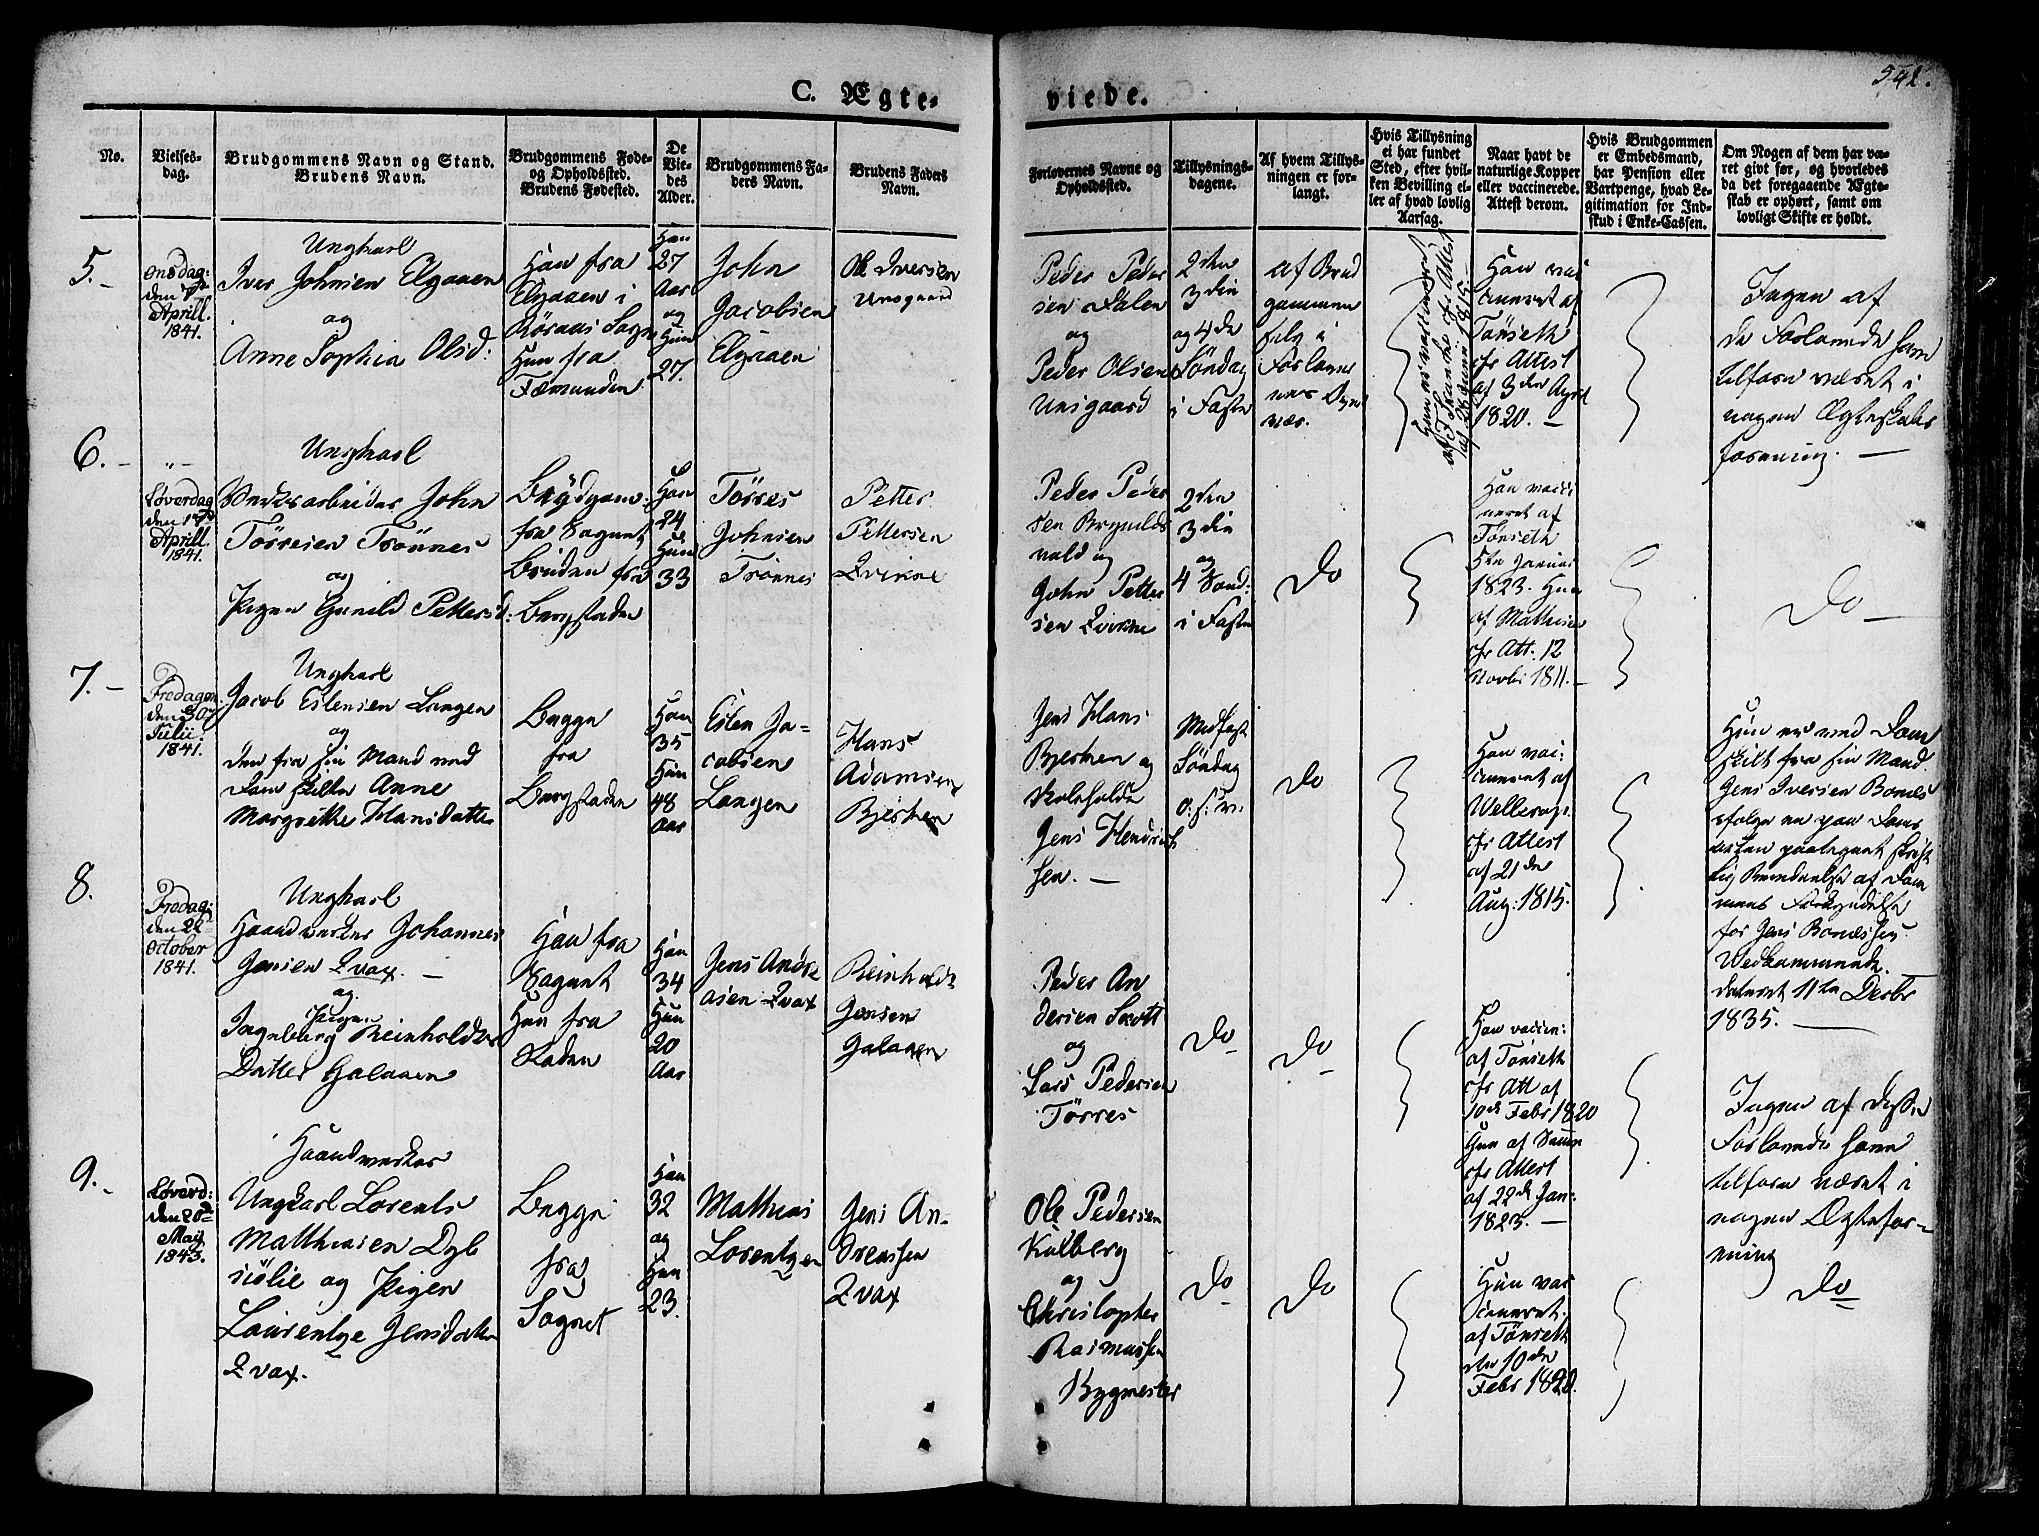 C. Ægte-
viede.
542.
No.
Vielses-
dag.
Brudgommens Navn og Stand.
Brudens Navn.
Brudgommens Føde-
og Opholdssted.
Brudens Fødested.
De
Vie-
des
Alder.
Brudgommens Fa-
ders Navn.
Brudens Faders
Navn.
Forlovernes Navne og
Opholdssted.
Tillysnings-
dagene.
Af hvem Tillys-
ningen er for-
langt.
Hvis Tillysning
ei har fundet
Sted, efter hvil-
ken Bevilling el-
ler af hvad lovlig
Aarsag.
Naar havt de
naturlige Kopper
eller vaccinerede.
Attest derom.
Hvis Brudgommen
er Embedsmand,
har Pension eller
Vartpenge, hvad Le-
gitimation for Ind-
skud i Enke-Cassen.
Om Nogen af dem har væ-
ret gift før, og hvorledes
da det foregaaende Ægte-
skab er ophørt, samt om
lovligt Skifte er holdt.
5.-
Onsdag:
den 7de
Aprill.
1841.
Ungkarl
Iver Johnsen Elgaaen
og
Anne Sophia Olsd:
Han fra
Elgaaen i
Röraas Sogn
Hun fra
Fæmunden.
Han
27
Aar
og
Hun
27.
John
Jacobsen
Elgaaen
Ole Iversen
Unsgaard
Peder Peder
sen Falen
og
Peder Olsen
Unsgaard
2den
3die
og 4de
Søndag
i Faste
af Brud
gommen
selv i
Forlover
nes
Han vac
cineret af
Tönseth
cfr Attest
af 3den April
1820. -
Ingen af
de Forlovede have
tilforn været i
nogen Ægteskabs
forening. -
6.-
Løverdag
den 17de
Aprill
1841.
Ungkarl
Verksarbeider John
Törresen Trönnes
og
Pigen Gunild Pettersd:
Brudgom:
fra Sognet
Bruden fra
Bergstaden
Han
24
Hun
33
Törres
Johnsen
Trönnes
Petter
Pettersen
Qvikne
Peder Peder
sen Brynilds
vold og
John Petter
sen Qvikne
2den
3die
og
4 Sönd:
i Faste
Do
Han vacci
neret af
Tönseth
5te Januar
1823. Hun
af Mathiesen
cfr Att: 12
Novbr 1811.-
Do -
7.-
Fredagen
den 30te
Julii.
1841.
Ungkarl
Jacob Eilensen Langen
og
den fra sin Mand ved
Dom skilte Anne
Margrethe Hansdatter
Begge
fra
Bergstaden
Han
35
Hun
48
Aar
Eilen Ja-
cobsen
Langen
Hans
Adamsen
Bjerken
Jens Hans
Bjerken og
Jens Hendrich
sen. -
Midfaste
Søndag
o.s.v.
Do
Han vac:
cineret af
cfr Attest
af 21de
Aug: 1815.
Hun er ved Dom
skilt fra sin Mand
Jens Iversen Bones
ifølge en paa Dom
Jens
Vedkommende.
dateret 11te Decbr
1835. -
8.
Fredag:
den 22de
October
1841.
Ungkarl
Haandverker Johannes
Jensen Qvax. -
og
Pigen
Ingeborg Reinholdts
Datter Galaaen
Han fra
Sognet
Hun fra
Staden
Han
34
Hun
20
Aar
Jens Andre
asen Qvax
Reinholdt
Jensen
Galaaen
Peder An
dersen Skott
og
Lars Pedersen
Törres
Do
Do
Han vaccin:
af Tönseth
cfr Att af
10de Febr 1820
Hun af Samme
cfr Attest
af 22de Jan:
1823. -
Ingen af disse
Forlovede have
tilforn været i
nogen Ægtefor-
ening
9.-
Løverd:
den 20de
Maij
1843.
Haandverker
Ungkarl Lorents
Matthiasen Dyb
siölie og Pigen
Laurentze Jensdatter
Qvax.
Begge
fra
Sognet
Han
32
og
Hun
23.
Mathias
Lorentzen
Jens An-
dreassen
Qvax
Ole Pedersen
Kulberg
og
Christopher
Rasmussen
Bygmester
Do
Do
Hun vac
cineret:
af Tönseth
den 10de
Febr 1820.
Do